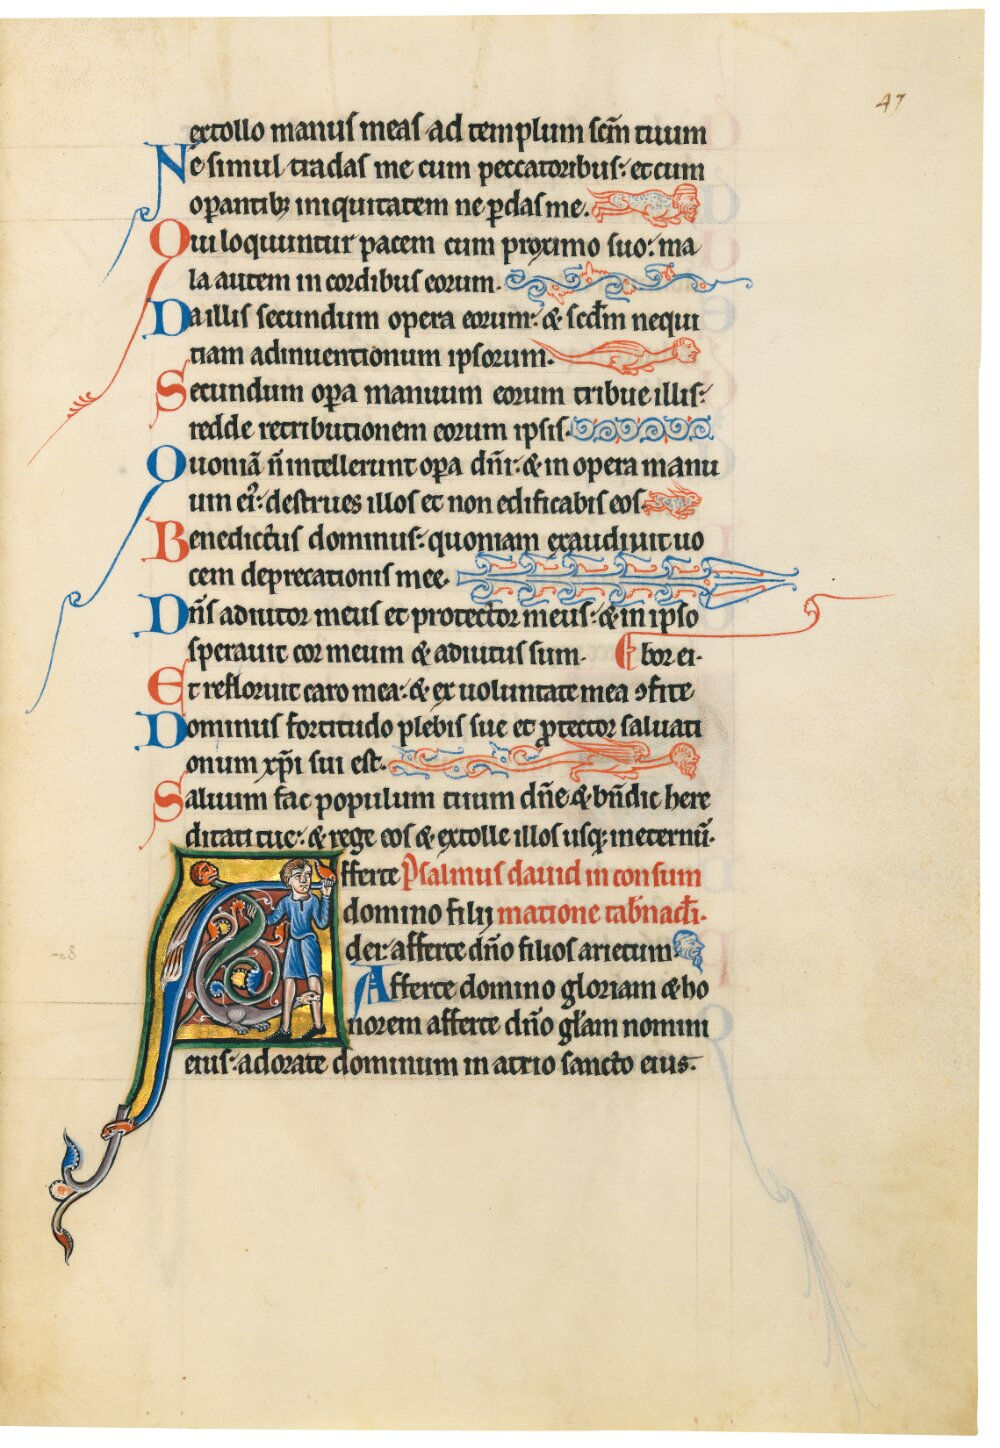 47
extollo manus meas ad templum sc̄m tuum
Ne simul tradas me cum peccatoribus: et cum
operantibꝫ iniquitatem ne ꝑdas me.
Qui loquuntur pacem cum proximo suo: ma
la autem in cordibus eorum.
Da illis secundum opera eorum: & scd̄m nequi
tiam adinuentionum ipsorum.
Secundum oꝑa manuum eorum tribue illis:
redde retributionem eorum ipsis.
Quoniā n̄ intellexerunt oꝑa dn̄i: & in opera manu
um ei': destrues illos et non edificabis eos.
Benedictus dominus: quoniam exaudiuit uo
cem deprecationis mee.
Dn̄s adiutor meus et protector meus: & in ipso
sperauit cor meum & adiutus sum.
Et refloruit caro mea: & ex uoluntate mea ↄfite
bor ei.
Dominus fortitudo plebis sue et ꝓtector saluati
onum xp̄i sui est.
Saluum fac populum tuum dn̄e & bn̄dic here
ditati tue: & rege eos & extolle illos usqꝫ in eternū.
Afferte Psalmus dauid in consum
domino filij matione tab̄nacl̄i.
dei: afferte dn̄o filios arietum.
Afferte domino gloriam & ho
norem afferte dn̄o gl̄am nomini
eius: adorate dominum in atrio sancto eius.